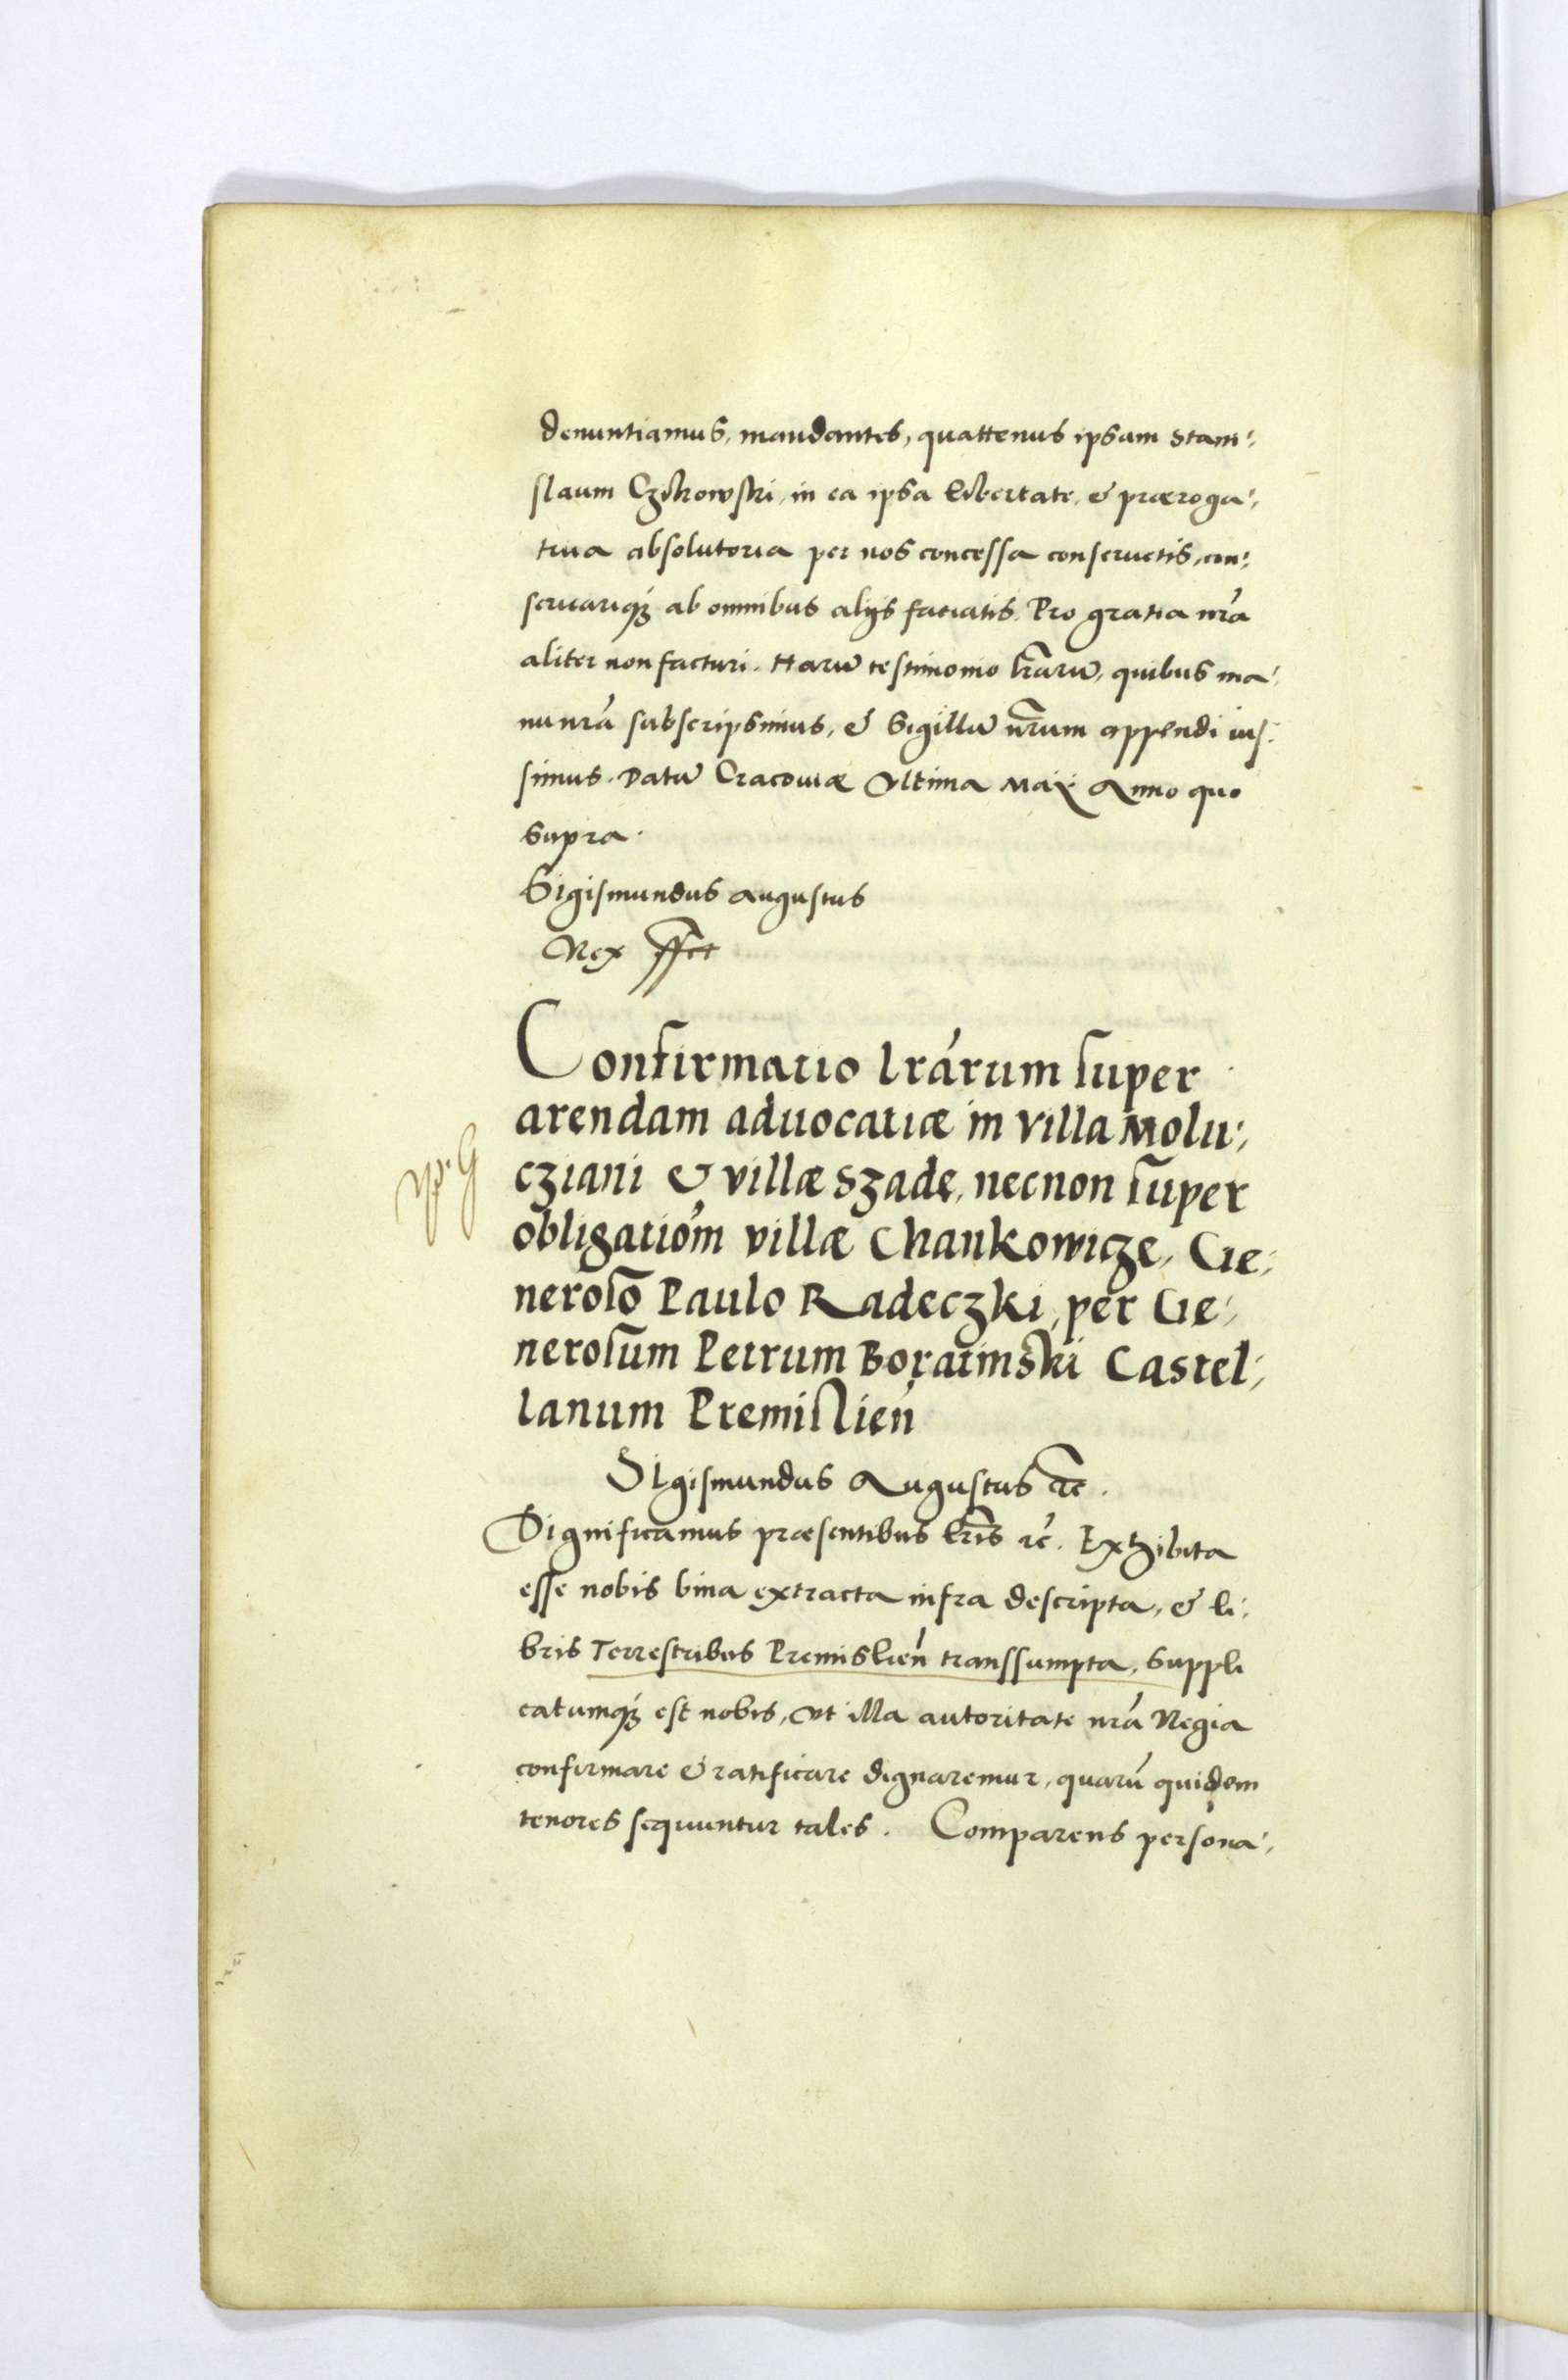 denuntiamus, mandantes, quattenus ipsum Stani¬
slaum Czikowski, in ea ipsa libertate, & præroga¬
tiua absolutoria per nos concessa conseruetis, con¬
seruariq3 ab omnibus alijs faciatis. Pro gratia nrã
aliter non facturi. Harũ testimonio lrãrũ, quibus ma¬
nu nrã subscripsimus, & Sigillũ nrũm appendi ius¬
simus. Datũ Cracouiæ Vltima Maij Anno quo
supra.
Sigismundus Augustus
Rex
Confirmatio lrárum super
arendam aduocatiæ in villa Molu¬
cziani & villæ Szade, necnon super
obligatióm villæ Chankowicze, Ge¬
neroso Paulo Radeczki, per Ge¬
nerosum Petrum Boratinski Castel¬
lanum Premislień
Sigismundus Augustus etc.
Significamus præsentibus lrĩs etc. Exhibita
esse nobis bina extracta infra descripta, & li¬
bris Terrestribus Premislień transsumpta, suppli
catumq3 est nobis, vt illa autoritate nrã Regia
confirmare & ratificare dignaremur, quarũ quidem
tenores sequuntur tales. Comparens persona¬